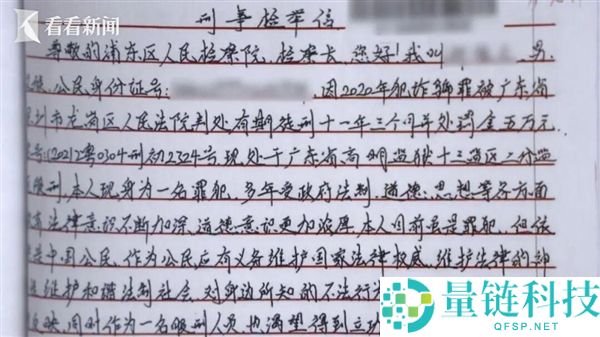 看看新闻
刑事检举信
尊敬的浦东区人民检察院，检察长，您好！我叫 男
汉族，公民身份证号： ，因2020年犯诈骗罪被广东省
圳市龙岗区人民法院判处有期徒刑十一年三个月并处罚金五万元
号：(2021)粤0304刑初2324号现处于广东省高明监狱十三监区二分监
服刑，本人现身为一名罪犯，多年受政府法制、道德、思想等各方面
法律意识不断加深，道德意识更加浓厚，本人目前虽是罪犯，但依
是中国公民，作为公民应有义务维护国家法律权威，维护法律的
维护和谐法制社会，对身边所知的不法行
反映，同时作为一名服刑人员也渴望得到立功
量链科技
QFSP.NET